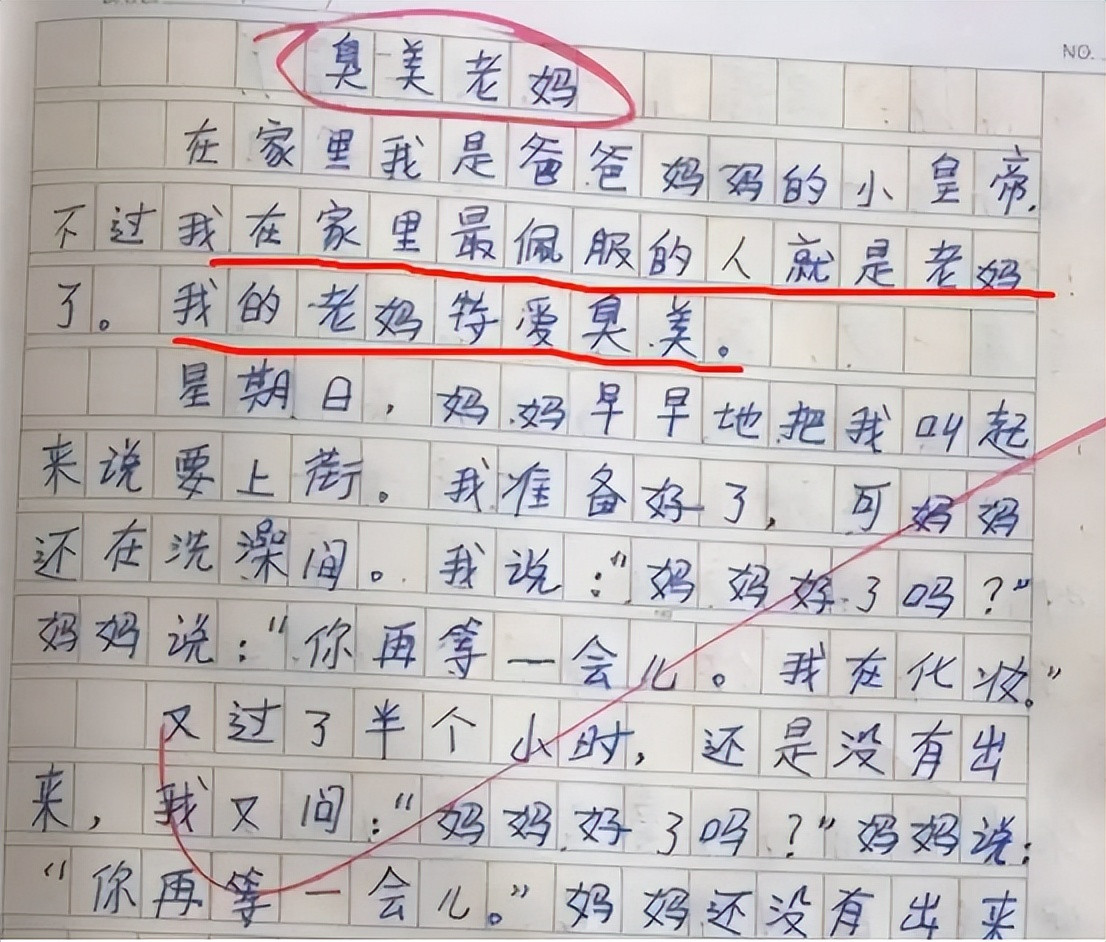 NO.
臭美老妈
在家里我是爸爸妈妈的小皇帝.
不过我在家里最佩服的人就是老妈
了。我的老妈特爱臭美。
星期日，妈妈早早地把我叫起
来说要上街。我准备好了，可妈妈
还在洗澡间。我说：“妈妈好了吗？”
妈妈说：“你再等一会儿。我在化妆。”
又过了半个小时，还是没有出
来，我又问：“妈妈好了吗？”妈妈说：
“你再等一会儿。”妈妈还没有出来